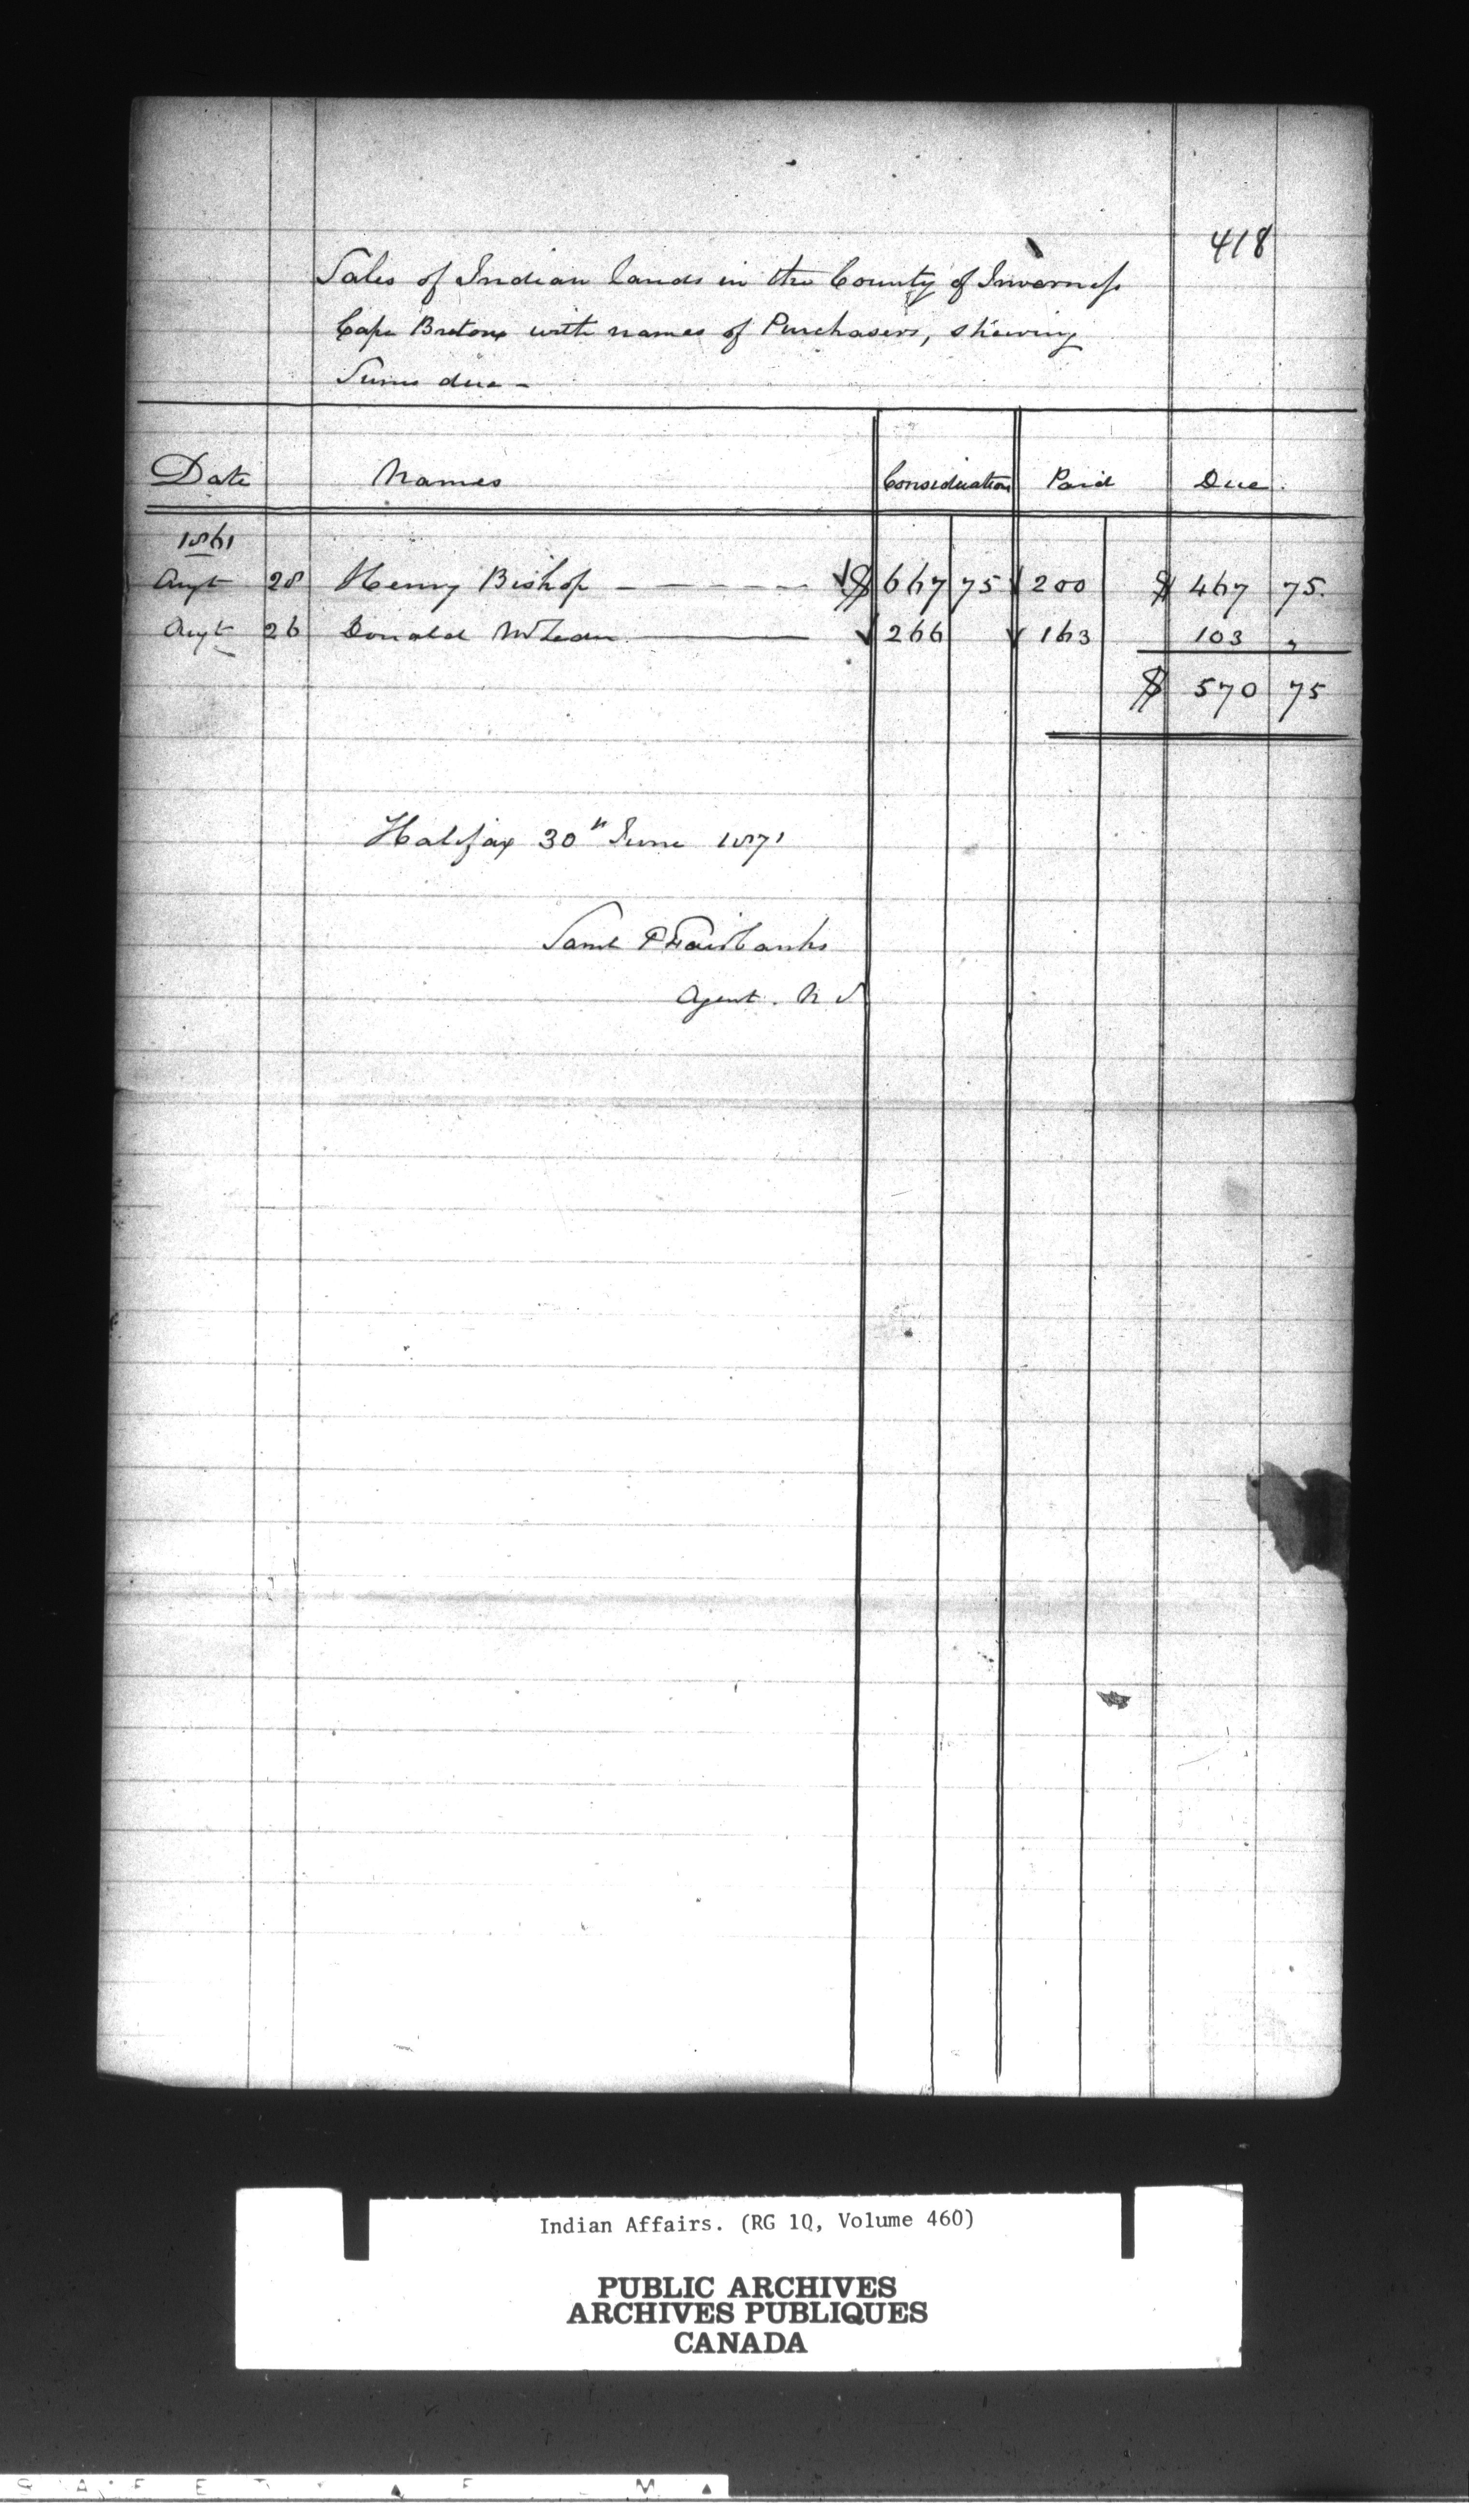 418
Sales of Indian lands in the County of Inverness
Cape Breton with names of Purchasers, shewing
Sums due -
Date Names Consideration Paid Due.
1861
Augt 28 Henry Bishop - - - - - $ 667 75 200 $ 467 75.
Augt 26 Donald McLean 266 163 103 "
$ 570 75
Halifax 30th June 1871
Saml P Fairbanks
Agent. N S
Indian Affairs. (RG 10, Volume 460)
PUBLIC ARCHIVES
ARCHIVES PUBLIQUES
CANADA